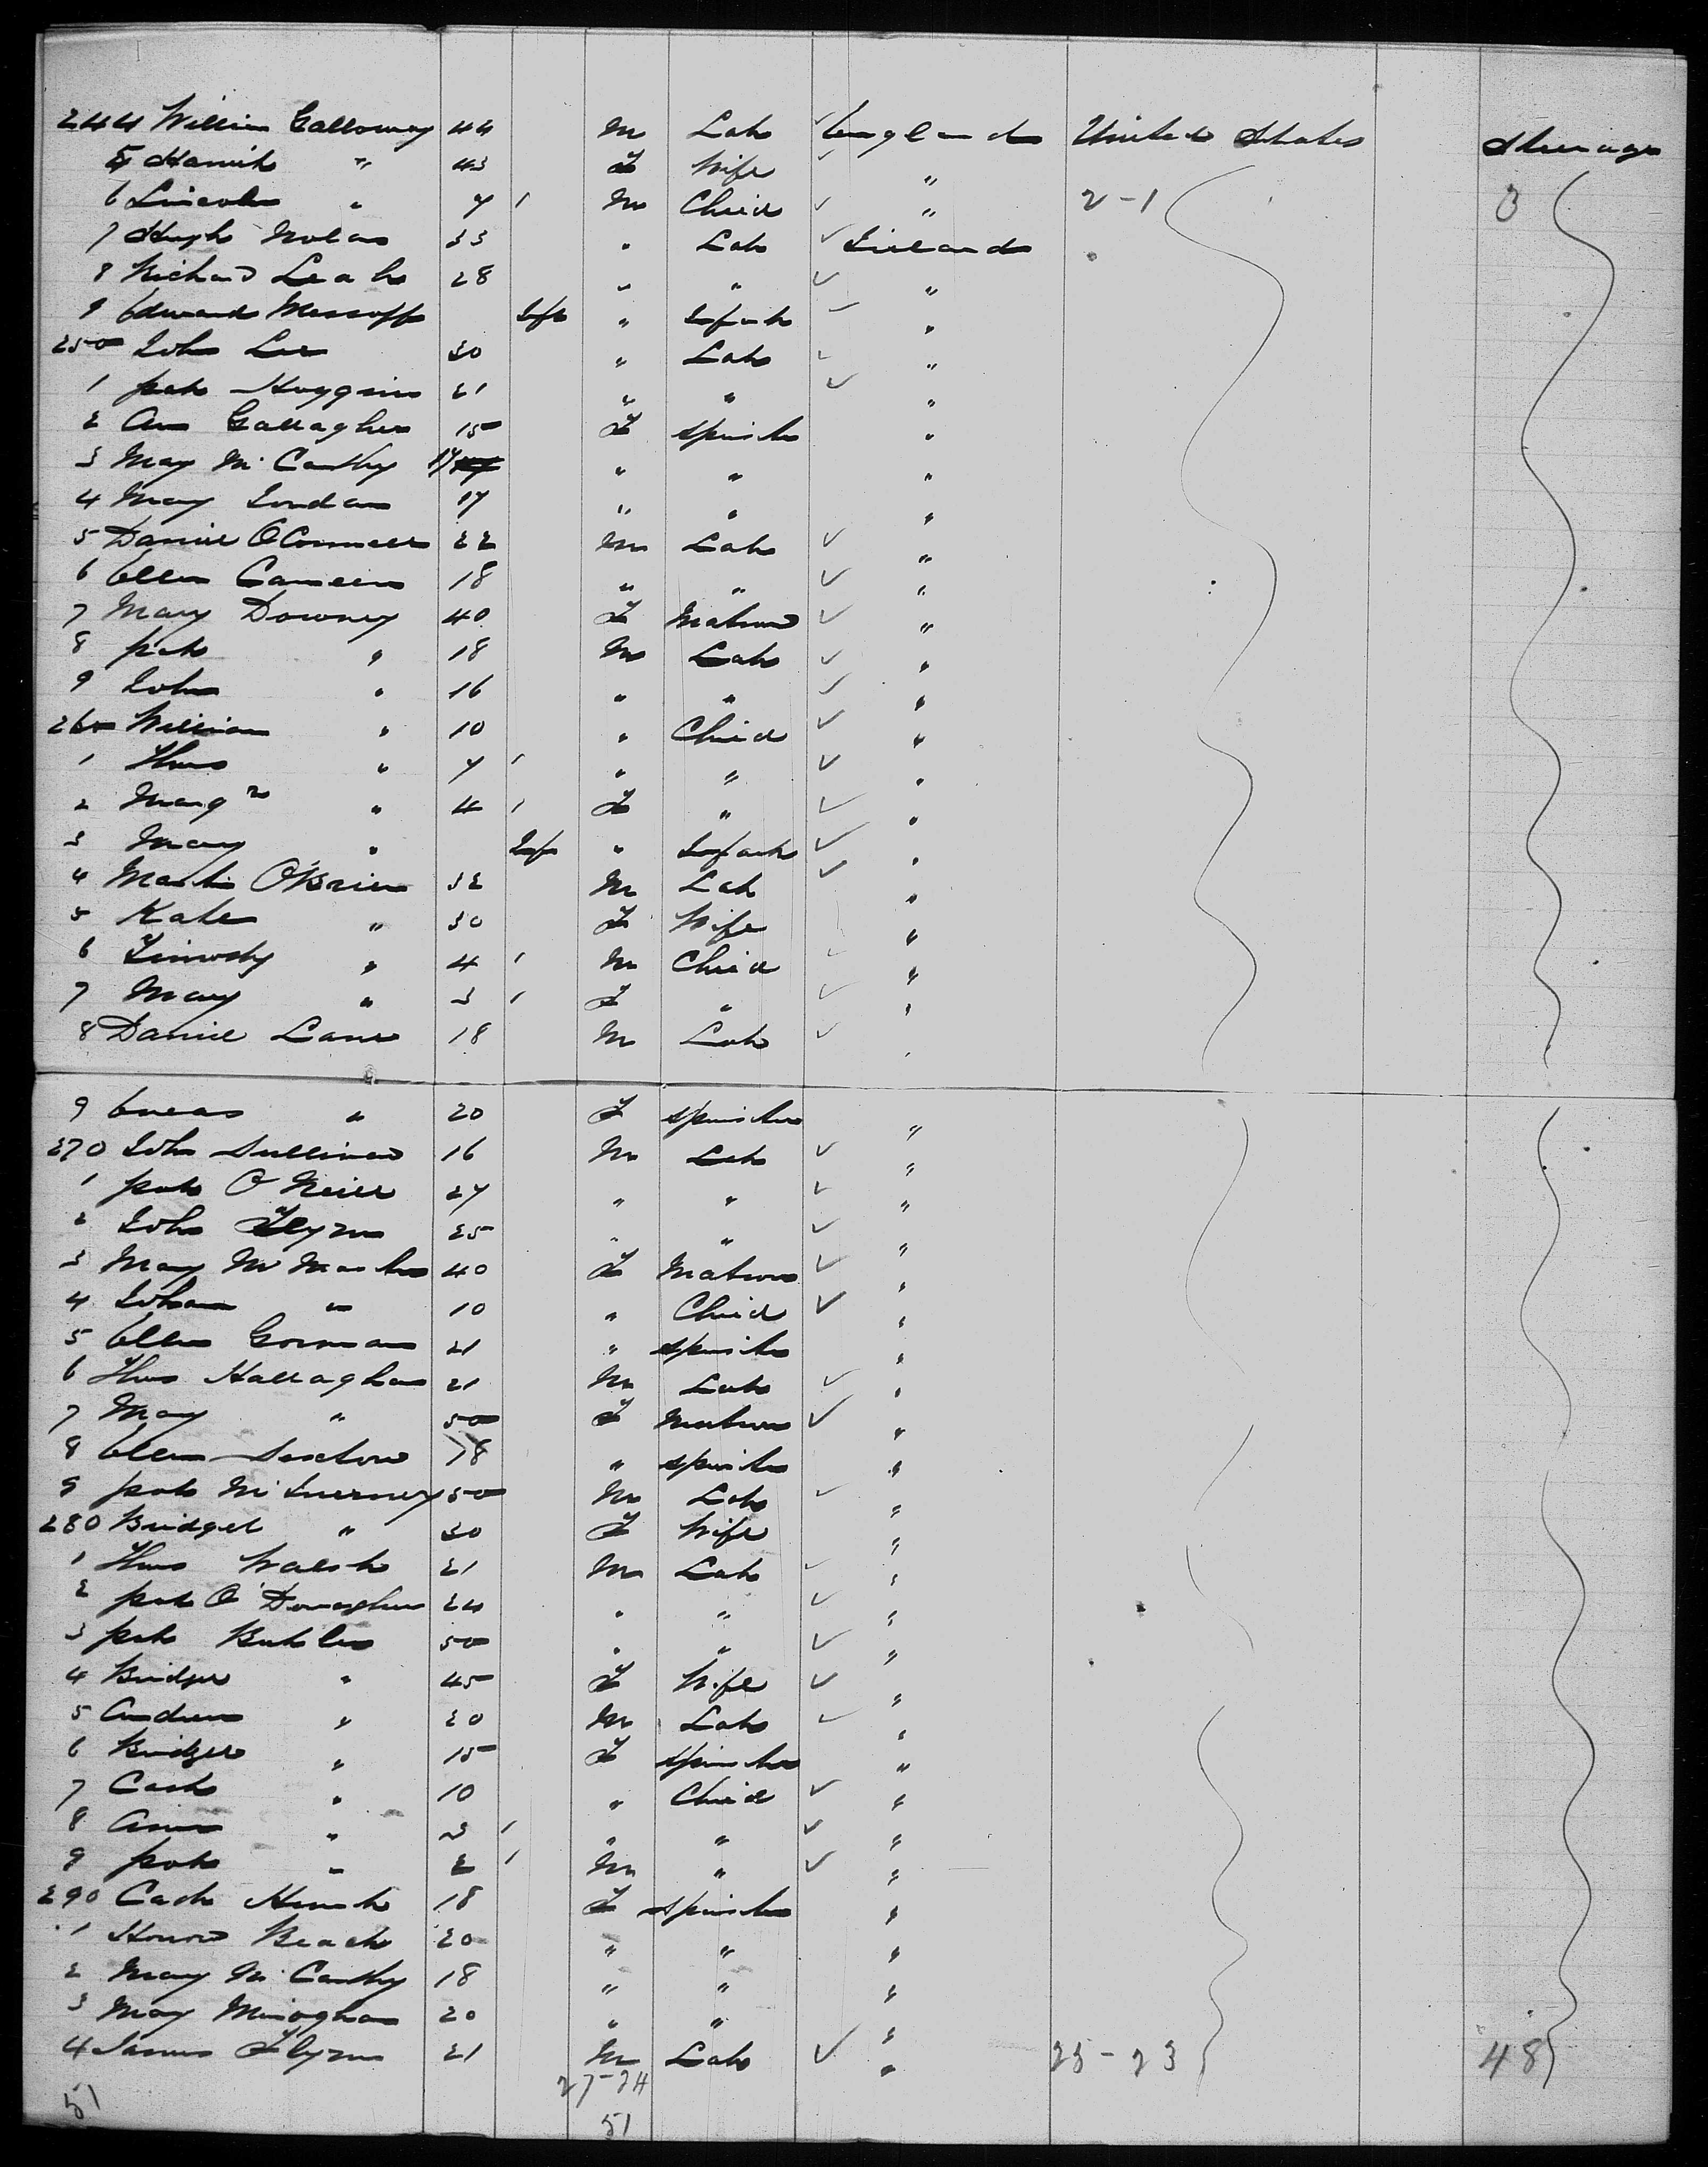 244 William Galloway 44 M Lab ✓ England United States Steerage
5 " 43 F Wife ✓ "
6 Lincoln " 7 1 M Child ✓ " 2-1 3
7 Hugh Nolan 33 " Lab ✓ Ireland
8 Richard 28 " " ✓ "
9 Edward Inft " Infant ✓ "
250 John Lee 30 " Lab ✓ "
1 Pat Huggins 21 " " ✓ "
2 Ann Gallagher 15 F Spinster "
3 Mary McCarthy 17 " " "
4 Mary Jordan 17 " " "
5 Daniel O'Connell 22 M Lab ✓ "
6 Ellen 18 " " ✓ "
7 Mary Downey 40 F Matron ✓ "
8 Pat " 18 M Lab ✓ "
9 John " 16 " " ✓ "
260 William " 10 " Child ✓ "
1 Thos " 7 1 " " ✓ "
2 Margt " 4 1 F " ✓ "
3 Mary " Inf " Infant ✓ "
4 Martin O'Brien 32 M Lab ✓ "
5 Kate " 30 F Wife "
6 Timothy " 4 1 M Child ✓ "
7 Mary " 3 1 F " ✓ "
8 Daniel Lane 18 M Lab ✓ "
9 " 20 F Spinster "
270 John Sullivan 16 M Lab ✓ "
1 Pat O'Neill 27 " " ✓ "
2 John Flynn 25 " " ✓ "
3 Mary 40 F Matron ✓ "
4 Johan " 10 " Child ✓ "
5 Ellen Gorman 21 " Spinster "
6 Thos Hallaghan 21 M Lab ✓ "
7 Mary " 50 F Matron ✓ "
8 Ellen Sexton 18 " Spinster "
9 Pat McInerney 50 M Lab ✓ "
280 Bridget " 30 F Wife "
1 Thos Walsh 21 M Lab ✓ "
2 Pat O'Donaghue 24 " " ✓ "
3 Pat Butler 50 " " ✓ "
4 Bridget " 45 F Wife ✓ "
5 Andrew " 20 M Lab ✓ "
6 Bridget " 15 F Spinster "
7 Cath " 10 " Child ✓ "
8 Anne " 3 1 " " ✓ "
9 Pat " 2 1 M " ✓ "
290 Cath 18 F Spinster "
1 Honor 20 " " "
2 Mary McCarthy 18 " " "
3 Mary Minoghan 20 " " "
4 James Flynn 21 M Lab ✓ " 25-23 48
27-24
51 51